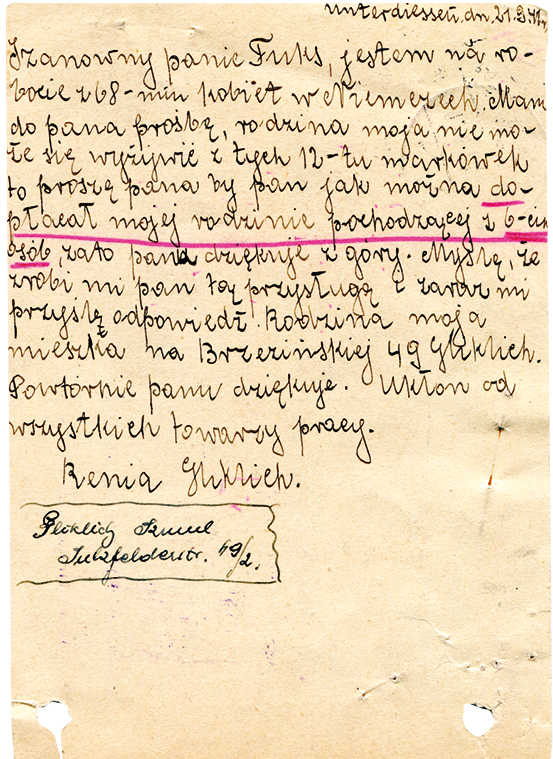 Unterdiessen, dn. 21.9.41.
Szanowny panie Fuks, jestem na ro-
bocie z 68-miu kobiet w Niemczech. Mam
do pana prośbę, rodzina moja nie mo-
że się wyżywić z tych 12-tu markówek
to proszę pana by pan jak można do-
płacał mojej rodzinie pochodzącej z 6-ciu
osób, zato pana dziękuje z góry. Myślę, że
zrobi mi pan tą przysługę i zaraz mi
przyslę odpowiedź. Rodzina moja
mieszka na Brzezińskiej 49 Gliklich.
Powtórnie panu dziękuje. Ukłon od
wszystkich towarzy pracy.
Renia Gliklich.
Gliklich Szmul
Sulzfelderstr. 49/2.